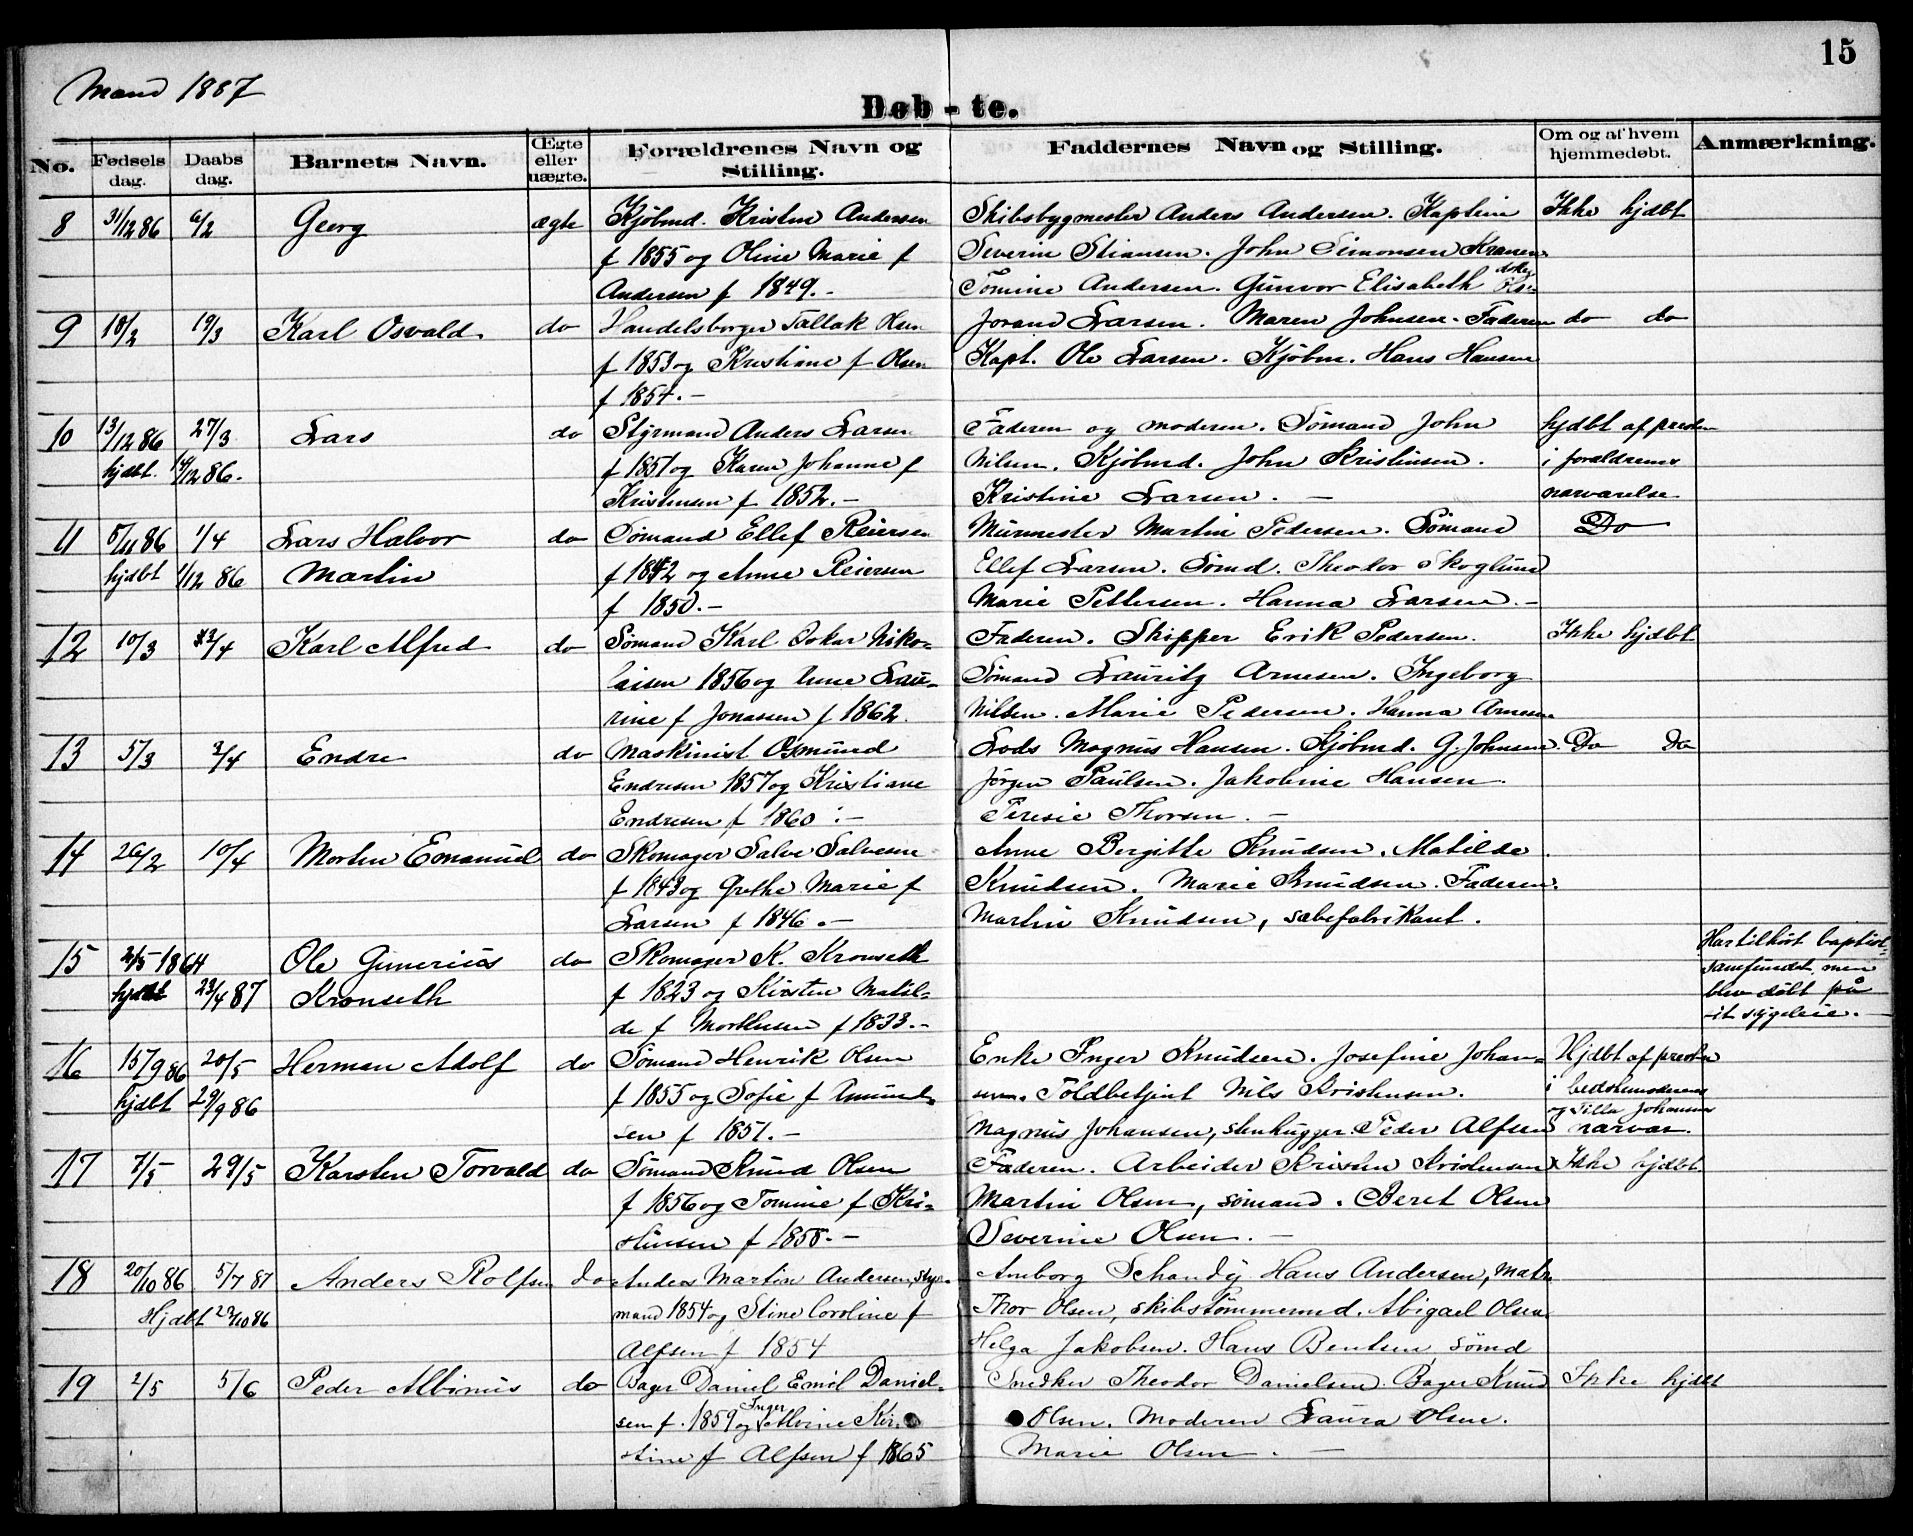 15
Mænd 1887
Døb - te.
No. Fødsels dag. Daabs dag. Barnets Navn. Ægte eller uægte. Forældrenes Navn og Stilling. Faddernes Navn og Stilling. Om og af hvem hjemmedøbt. Anmærkning.
8 31/12 86 6/2 Georg ægte Kjøbmd. Kristen Andersen Skibsbygmester Anders Andersen. Kaptein Ikke hjdbt
f 1855 og Oline Marie f Severin Stiansen. John Simonsen
Andersen f 1849.- Tomine Andersen. Gunvor Elisabeth
9 18/2 19/3 Karl Osvald do Handelsborger Tallak Olsen Jorand Larsen. Maren Johnsen. Faderen do do
f 1853 og Kristiane f Olsen Kapt. Ole Larsen. Kjøbm. Hans Hansen
f 1854.-
10 13/12 86 27/3 Lars do Styrmand Anders Larsen Faderen og moderen. Sømand John hjdbt af presten
hjdbt. 14/12 86. f 1851 og Karen Johanne f Nilsen. Kjøbmd. John Kristensen. i foraldrenes
Kristensen f 1852.- Kristine Larsen. - narvarelse
11 8/11 86 1/4 Lars Halvor do Sømand Ellef Reiersen Murmester Martin Pedersen. Sømand Do
hjdbt 1/12 86 Martin f 1842 og Anne Reiersen Ellef Larsen. Sømd. Theodor Skoglund
f 1850.- Marie Pettersen. Hanna Larsen.-
12 10/3 /4 Karl Alfred do Sømand Karl Oskar Niko- Faderen. Skipper Erik Pedersen. Ikke hjdbt
laisen 1856 og Anne Lau- Sømand Lauritz Arnesen. Ingeborg
rine f Jonassen f 1862. Nilsen. Marie Pedersen. Hanna Arnesen
13 5/3 3/4 Endre do Maskinist Osmund Lods Magnus Hansen. Kjøbmd. G. Johnsen. Do Do
Endresen 1857 og Kristiane Jørgen Paulsen. Jakobine Hansen.
Endresen f 1860 :- Teresie Thorsen. -
14 26/2 10/4 Morten Emanuel do Skomager Salve Salvesen Anne Bergitte Knudsen. Matilde
f 1843 og Grethe Marie f Knudsen. Marie Knudsen. Faderen.
Larsen f 1846.- Martin Knudsen, sæbefabrikant.
15 2/5 1864 Ole Gunerius do Skomager K. Kronseth Har tilhört baptist-
hjdbt 23/4 87 Kronseth f 1823 og Kirsten Matil- samfundet, men
de f Morthensen f 1833.- blev döbt på
sit sygeleie.-
16 15/9 86 20/5 Herman Adolf do Sømand Henrik Olsen Enke Inger Knudsen. Josefine Johan- Hjdbt af presten
hjdbt 29/9 86 f 1855 og Sofie f Amund- sen. Toldbetjent Nils Kristensen. i bedstemoderens
sen f 1851.- Magnus Johansen, stenhugger. Peder Alfsen og Tilla Johansens narvar.
17 7/5 29/5 Karsten Torvald do Sømand Knud Olsen Faderen. Arbeider Kristen Kristensen Ikke hjdbt
f 1856 og Tomine f Kri- Martin Olsen, sømand. Beret Olsen
stensen f 1858.- Severine Olsen.-
18 20/10 86 5/7 87 Anders Rolfsen do Anders Martin Andersen, styr- Amborg Schandy Hans Andersen, matr.
Hjdbt 23/10 86 mand 1854 og Stine Caroline f Thor Olsen, skibstømmermd. Abigael Olsen
Alfsen f 1854 Helga Jakobsen. Hans Bentsen sömd
19 2/5 5/6 Peder Albinus do Bager Daniel Emil Daniel- Snedker Theodor Danielsen. Bager Knud Ikke hjdbt
sen f. 1859 og Inger Albine Kir- Olsen. Moderen Laura Olsen.
stine f Alfsen f 1865 Marie Olsen. -